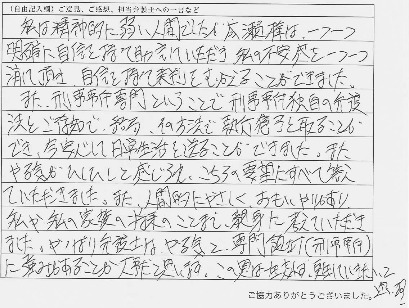 (自由記入欄) ご意見、ご感想、担当弁護士への一言など
私は精神的に弱い人間でしたが広瀬様は、一つ一つ
明確に自信を持て助言いただき私の不安感を一つ一つ
消して頂き、自信を持て裁判をむかえることができました。
また、刑事事件専門ということで刑事事件独自の弁護
法をご存知で、結局、その方法で執行猶予を取ることが
でき、今安心して日常生活を送ることができました。また
やる気がひしひしと感じられ、こちらの要望にすべて答え
ていただきました。また、人間的にやさしく、おもいやりがあり
私や私の家族の将来のことまで、親身に考えていただき
ました。やっぱり弁護士は、やる気と、専門領域(刑事事件)
に強みがあることが大事だと思います。この
ご協力ありがとうございました。